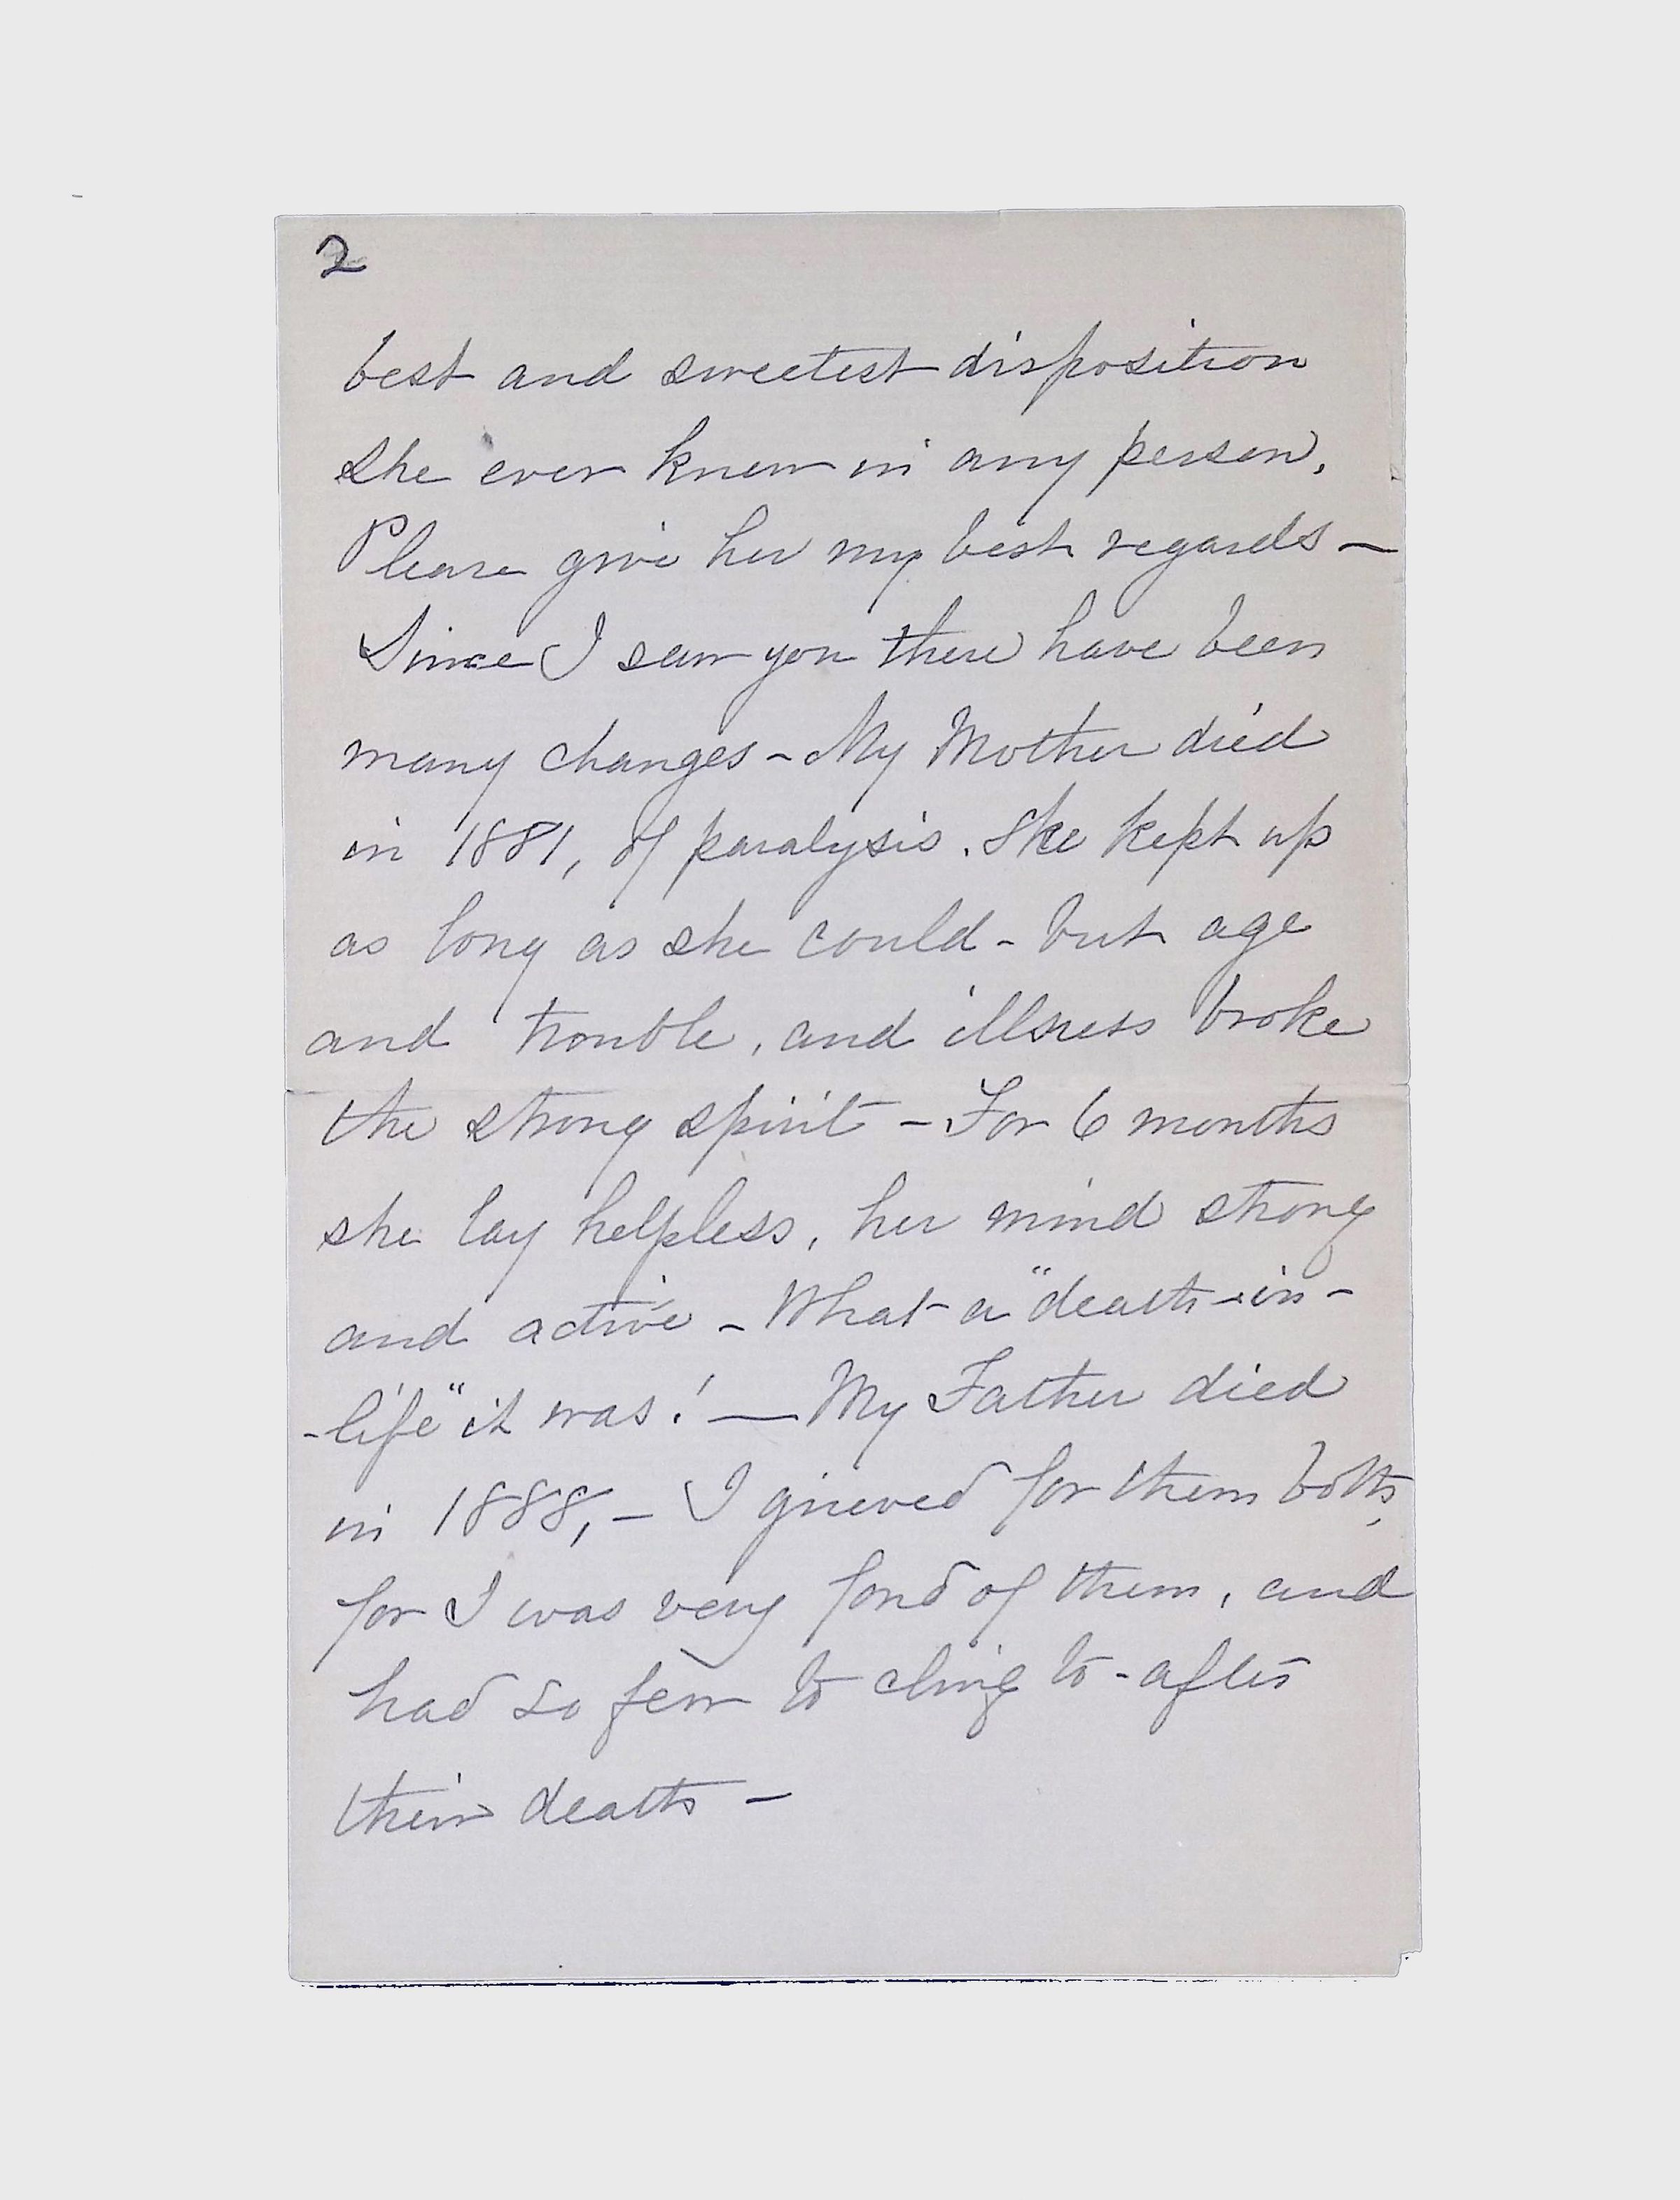 2
best and sweetest disposition
she ever knew in any person.
Please give her my best regards —
Since I saw you there have been
many changes - My Mother died
in 1881, of paralysis. She kept up
as long as she could - but age
and trouble, and illness broke
the strong spirit - For 6 months
she lay helpless, her mind strong
and active - What a "death-in-
-life" it was! — My Father died
in 1888, - I grieved for them both,
for I was very fond of them, and
had so few to cling to - after
their death -